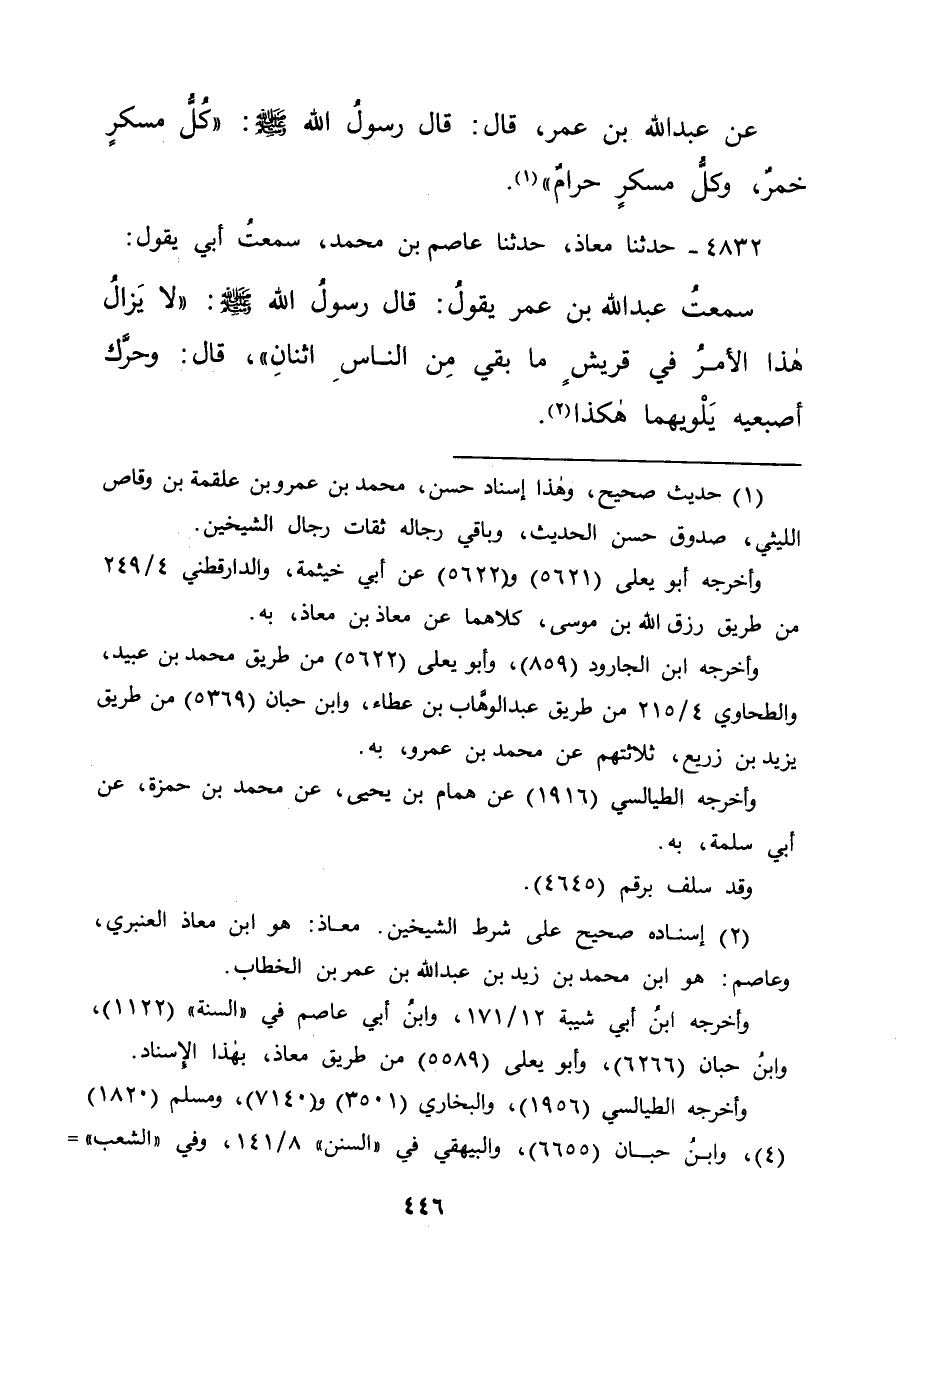 عن عبدالله بن عمر، قال: قال رسولُ الله ﷺ: «كُلُّ مسكرٍ
خمرٌ، وكلُّ مسكرٍ حرامٌ»(١).
٤٨٣٢ ـ حدثنا معاذ، حدثنا عاصم بن محمد، سمعتُ أبي يقول:
سمعتُ عبدالله بن عمر يقولُ: قال رسولُ الله ﷺ: «لا يَزالُ
هٰذا الأمـرُ في قريشٍ ما بقي مِن النـاسِ اثنانِ»، قال: وحرَّك
أصبعيه يَلْويهما هٰكذا(٢).
(١) حديث صحيح، وهٰذا إسناد حسن، محمد بن عمرو بن علقمة بن وقاص
الليثي، صدوق حسن الحديث، وباقي رجاله ثقات رجال الشيخين.
وأخرجه أبو يعلى (٥٦٢١) و(٥٦٢٢) عن أبي خيثمة، والدارقطني ٢٤٩/٤
من طريق رزق الله بن موسى، كلاهما عن معاذ بن معاذ، به.
وأخرجه ابن الجارود (٨٥٩)، وأبو يعلى (٥٦٢٢) من طريق محمد بن عبيد،
والطحاوي ٢١٥/٤ من طريق عبدالوهَّاب بن عطاء، وابن حبان (٥٣٦٩) من طريق
يزيد بن زريع، ثلاثتهم عن محمد بن عمرو، به.
وأخرجه الطيالسي (١٩١٦) عن همام بن يحيى، عن محمد بن حمزة، عن
أبي سلمة، به.
وقد سلف برقم (٤٦٤٥).
(٢) إسنـاده صحيح على شرط الشيخين. معـاذ: هو ابن معاذ العنبري،
وعاصم: هو ابن محمد بن زيد بن عبدالله بن عمر بن الخطاب.
وأخرجه ابنُ أبي شيبة ١٧١/١٢، وابنُ أبي عاصم في «السنة» (١١٢٢)،
وابنُ حبان (٦٢٦٦)، وأبو يعلى (٥٥٨٩) من طريق معاذ، بهٰذا الإسناد.
وأخرجه الطيالسي (١٩٥٦)، والبخاري (٣٥٠١) و(٧١٤٠)، ومسلم (١٨٢٠)
(٤)، وابـنُ حبـان (٦٦٥٥)، والبيهقي في «السنن» ١٤١/٨، وفي «الشعب» =
٤٤٦